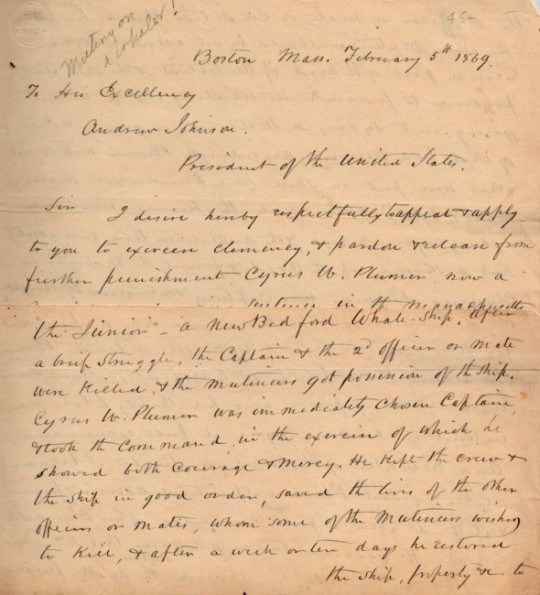 Mutiny on
a whaler!
95-
Boston, Mass. February 5th 1869.
To His Excellency
Andrew Johnson.
President of the United States.
Sir I desire hereby respectfully to appeal & apply
to you to exercise clemency, & pardon & release from
further punishment Cyrus W. Plumer now a
sentence in the Massachusetts
the "Junior" - a New Bedford Whale-Ship, after
a brief struggle, the Captain & the 2d officer or mate
were killed, & the mutineers got possession of the ship.
Cyrus W. Plumer was immediately chosen Captain
& took the command, in the exercise of which he
showed both courage & mercy. He kept the crew &
the ship in good order, saved the lives of the other
officers or mates, whom some of the mutineers wished
to kill, & after a week or ten days he restored
the ship, property &c. to